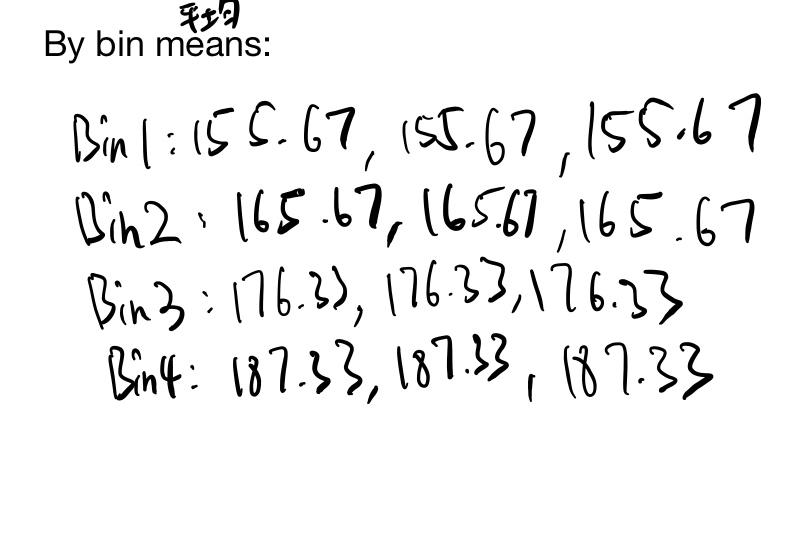 平均
By bin means:
Bin1: 155.67, 155.67, 155.67
Bin2: 165.67, 165.67, 165.67
Bin3: 176.33, 176.33, 176.33
Bin4: 187.33, 187.33, 187.33